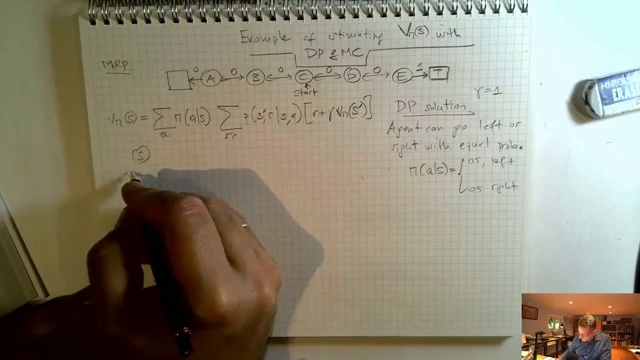 Example of estimating Vπ(s) with
DP & MC
MRP
0 0 0 0 0 1
A B C D E T
start
Vπ(s) = Σ_a π(a|s) Σ_s'r p(s',r|s,a) [r + γ Vπ(s')]
DP solution γ=1
Agent can go left or
right with equal prob.
π(a|s) = { 0.5, left
0.5 right
S
ERAS